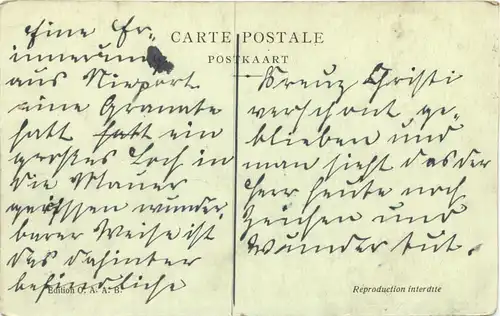 CARTE POSTALE
POSTKAART
Eine Er-
innerung
aus Nieport
eine Granate
hatt hatt ein
großes Loch in
die Mauer
gerissen wunder
barer Weise ist
das dahinter
befindliche
Kreuz Christi
verschont ge-
blieben und
man sieht das der
Herr heute noch
Zeichen und
Wunder tut.
Edition O. A. A. B.
Reproduction interdite